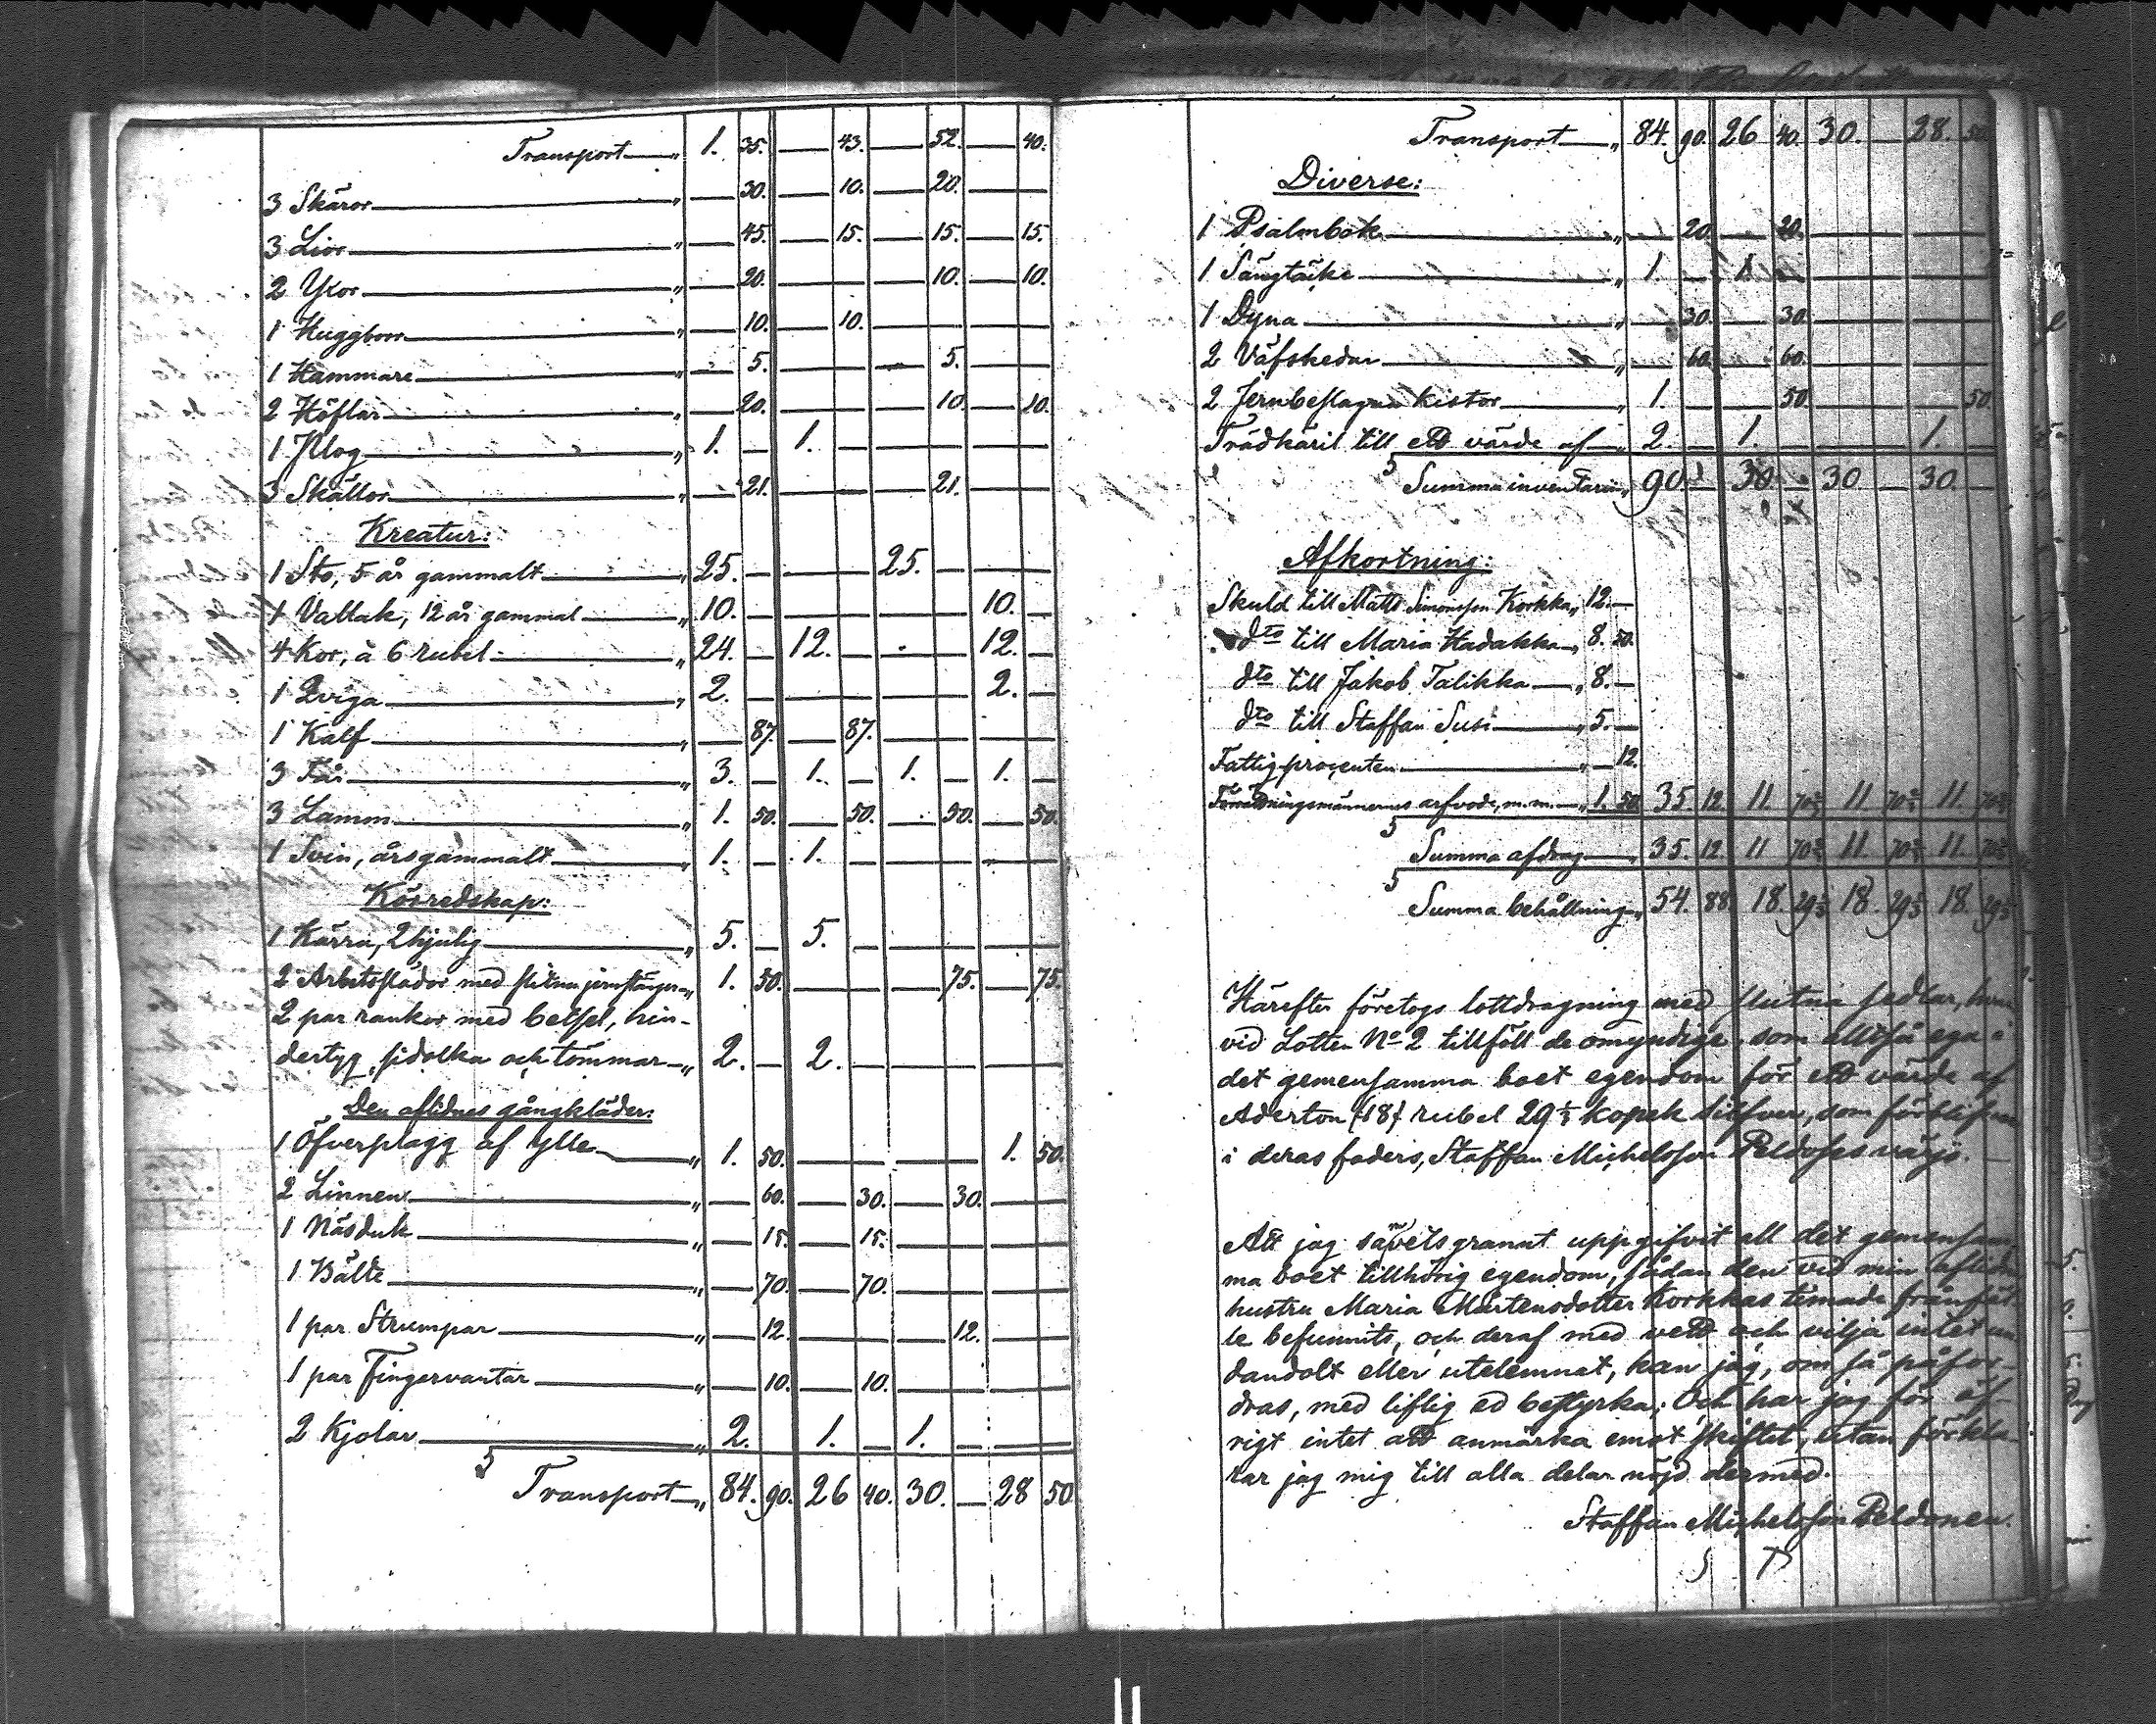 Transport " 1. 35. — 43. — 52. — 40.
3 Skäror " — 30. — 10. — 20. — —
3 Lior " — 45. — 15. — 15. — 15.
2 Yxor " — 20. — — — 10. — 10.
1 Huggborr " — 10. — 10. — — — —
1 Hammare " — 5. — — — 5. — —
2 Höflar " — 20. — — — 10. — 10.
1 Plog " 1. — 1. — — — — —
3 Skällor " — 21. — — — 21. — —
Kreatur:
1 Sto, 5 år gammalt " 25. — — — 25. — — —
1 Vallak, 12 år gammal " 10. — — — — — 10. —
4 Kor, à 6 rubel " 24. — 12. — — — 12. —
1 Qviga " 2. — — — — — 2. —
1 Kalf " — 87. — 87. — — — —
3 Får " 3. — 1. — 1. — 1. —
3 Lamm " 1. 50. — 50. — 50. — 50.
1 Svin, årsgammalt " 1. — 1. — — — — —
Körredskap:
1 Kärra, 2hjulig " 5. — 5. — — — — —
2 Arbetsslädor med slitna jernstänger " 1. 50. — — — 75. — 75.
2 par rankor med betsel, hin-
dertyg, sidolka och tömmar " 2. — 2. — — — — —
Den aflidnes gångkläder:
1 Öfverplagg af ylle " 1. 50. — — — — 1. 50.
2 Linnen " — 60. — 30. — 30. — —
1 Näsduk " — 15. — 15. — — — —
1 Bälte " — 70. — 70. — — — —
1 par Strumpor " — 12. — — — 12. — —
1 par Fingervantar " — 10. — 10. — — — —
2 Kjolar " 2. 1. — 1. — — —
Transport " 84. 90. 26 40. 30. — 28 50
Transport " 84. 90. 26 40. 30. — 28. 50
Diverse:
1 Psalmbok " — 20. — 20. — — — —
1 Sängtäcke " 1. — 1. — — — — —
1 Dyna " — 30. — 30. — — — —
2 Väfskedar " — 60. — 60. — — — —
2 Jernbeslagna kistor " 1. — — 50. — — — 50.
Trädkäril till ett värde af " 2. — 1. — — — 1. —
Summa inventarium " 90. — 30 — 30 — 30. —
Afkortning:
Skuld till Matts Simonsson Korkka " 12. —
dto till Maria Hadakka " 8. 50.
dto till Jakob Talikka " 8. —
dto till Staffan Susi " 5. —
Fattigprocenten " — 12.
Förrättningsmännernes arfvode, m.m. " 1. 50. 35. 12. 11. 70⅔ 11 70⅔ 11. 70⅔
Summa afdrag " 35. 12. 11 70⅔ 11. 70⅔ 11. 70⅔
Summa behållning " 54. 88. 18. 29⅓ 18. 29⅓ 18. 29⅓
Härefter företogs lottdragning med slutna sedlar, hvar
vid Lotten No 2 tillföll de omyndige, som alltså ega i
det gemensamma boet egendom för ett värde af
Aderton /18/ rubel 29⅓ kopek silfver, som förblifver
i deras faders, Staffan Michelsson Peldoses värjo.
Att jag samvetsgrannt uppgifvit all det gemensam-
ma boet tillhörig egendom, sådan den vid min aflidna
hustru Maria Mårtensdotter Korkkas timade frånfäl-
le befunnits, och deraf med vett och vilja intet un-
dandolt eller utelemnat, kan jag, om så påfor-
dras, med liflig ed bestyrka; Och har jag för öf-
rigt intet att anmärka emot skiftet, utan förkla-
rar jag mig till alla delar nöjd dermed.
Staffan Michelsson Peldonen.